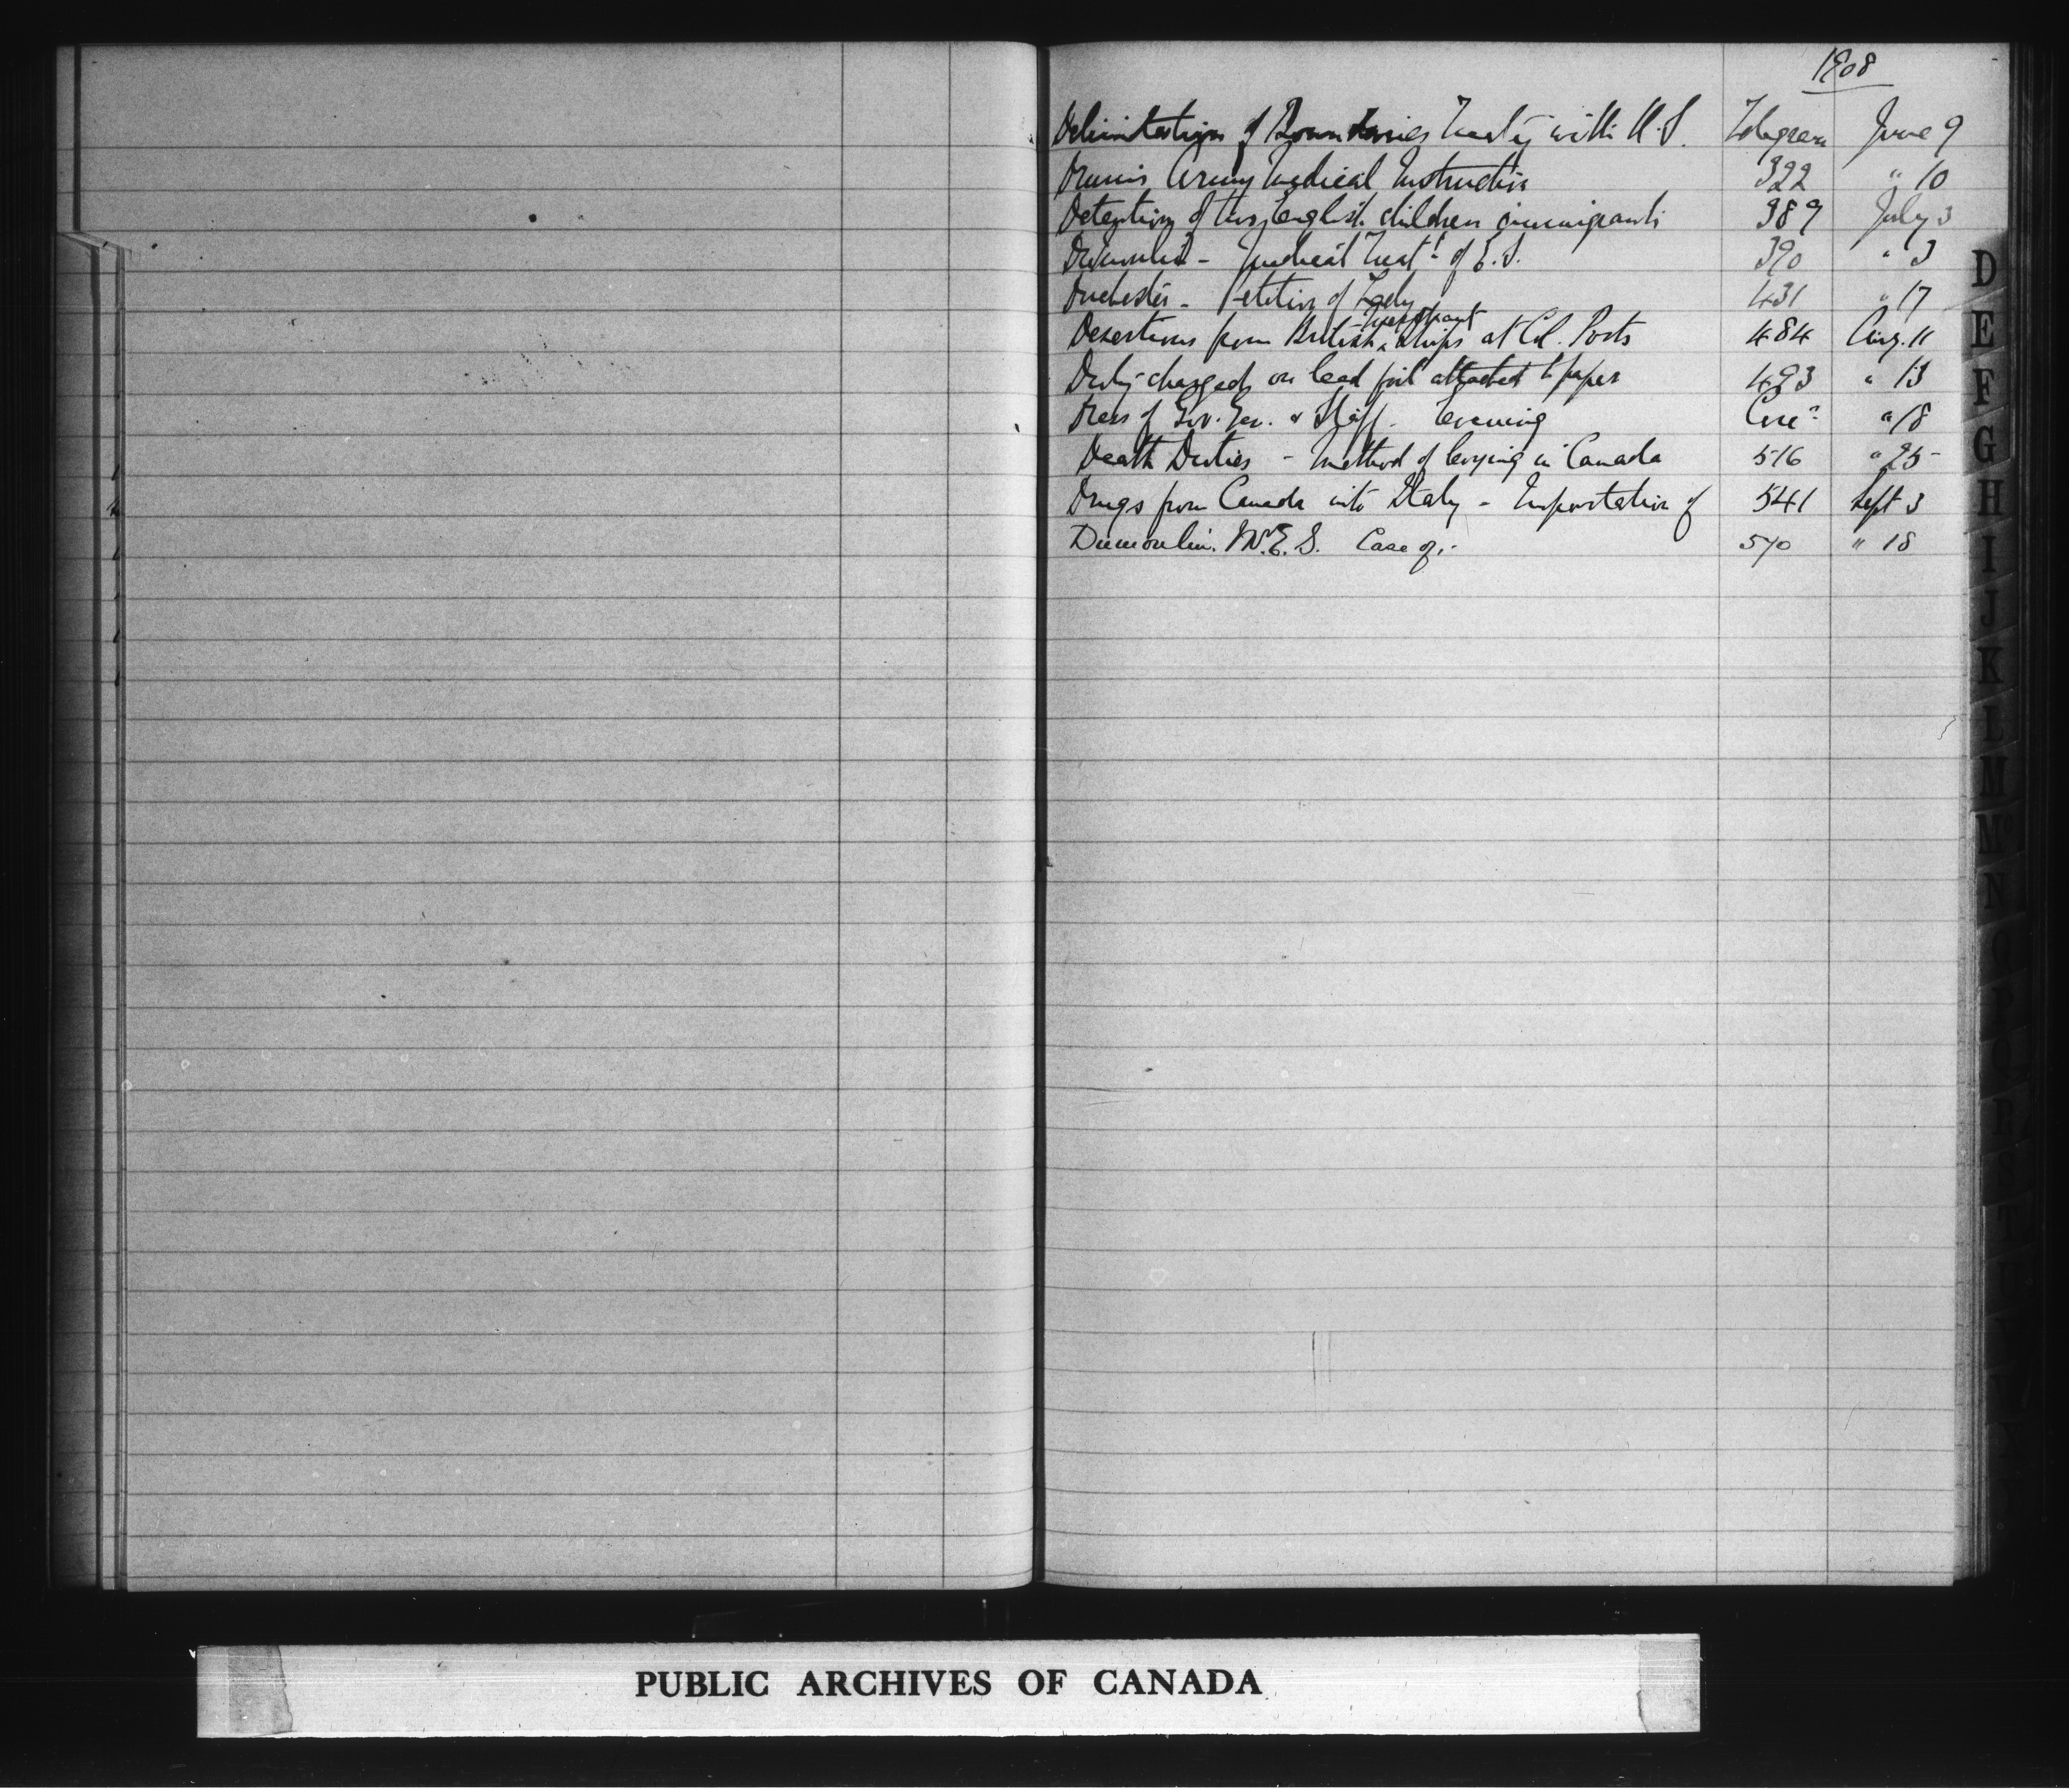 1908
Delimitation of Boundaries Treaty with U.S. Telegram June 9
Army Medical Instruction 322 " 10
Detention of two English children immigrants 389 July 3
Dumoulin - Medical Treat! of E.S. 390 " 3
Duchester - Petition of Lady 431 " 17
Merchant
Desertions from British ^ Ships at Col. Ports 484 Aug. 11
Duty charged on lead foil attached to paper 493 " 13
Dress of Gov. Gen. & Staff. Evening " 18
Death Duties - Method of levying in Canada 516 " 25
Drugs from Canada into Italy - Importation of 541 Sept 3
Dumoulin. Mr. E. S. Case of.- 570 " 18
D
E
F
G
H
I
J
K
L
M
Mc
N
O
P
Q
R
S
T
PUBLIC ARCHIVES OF CANADA